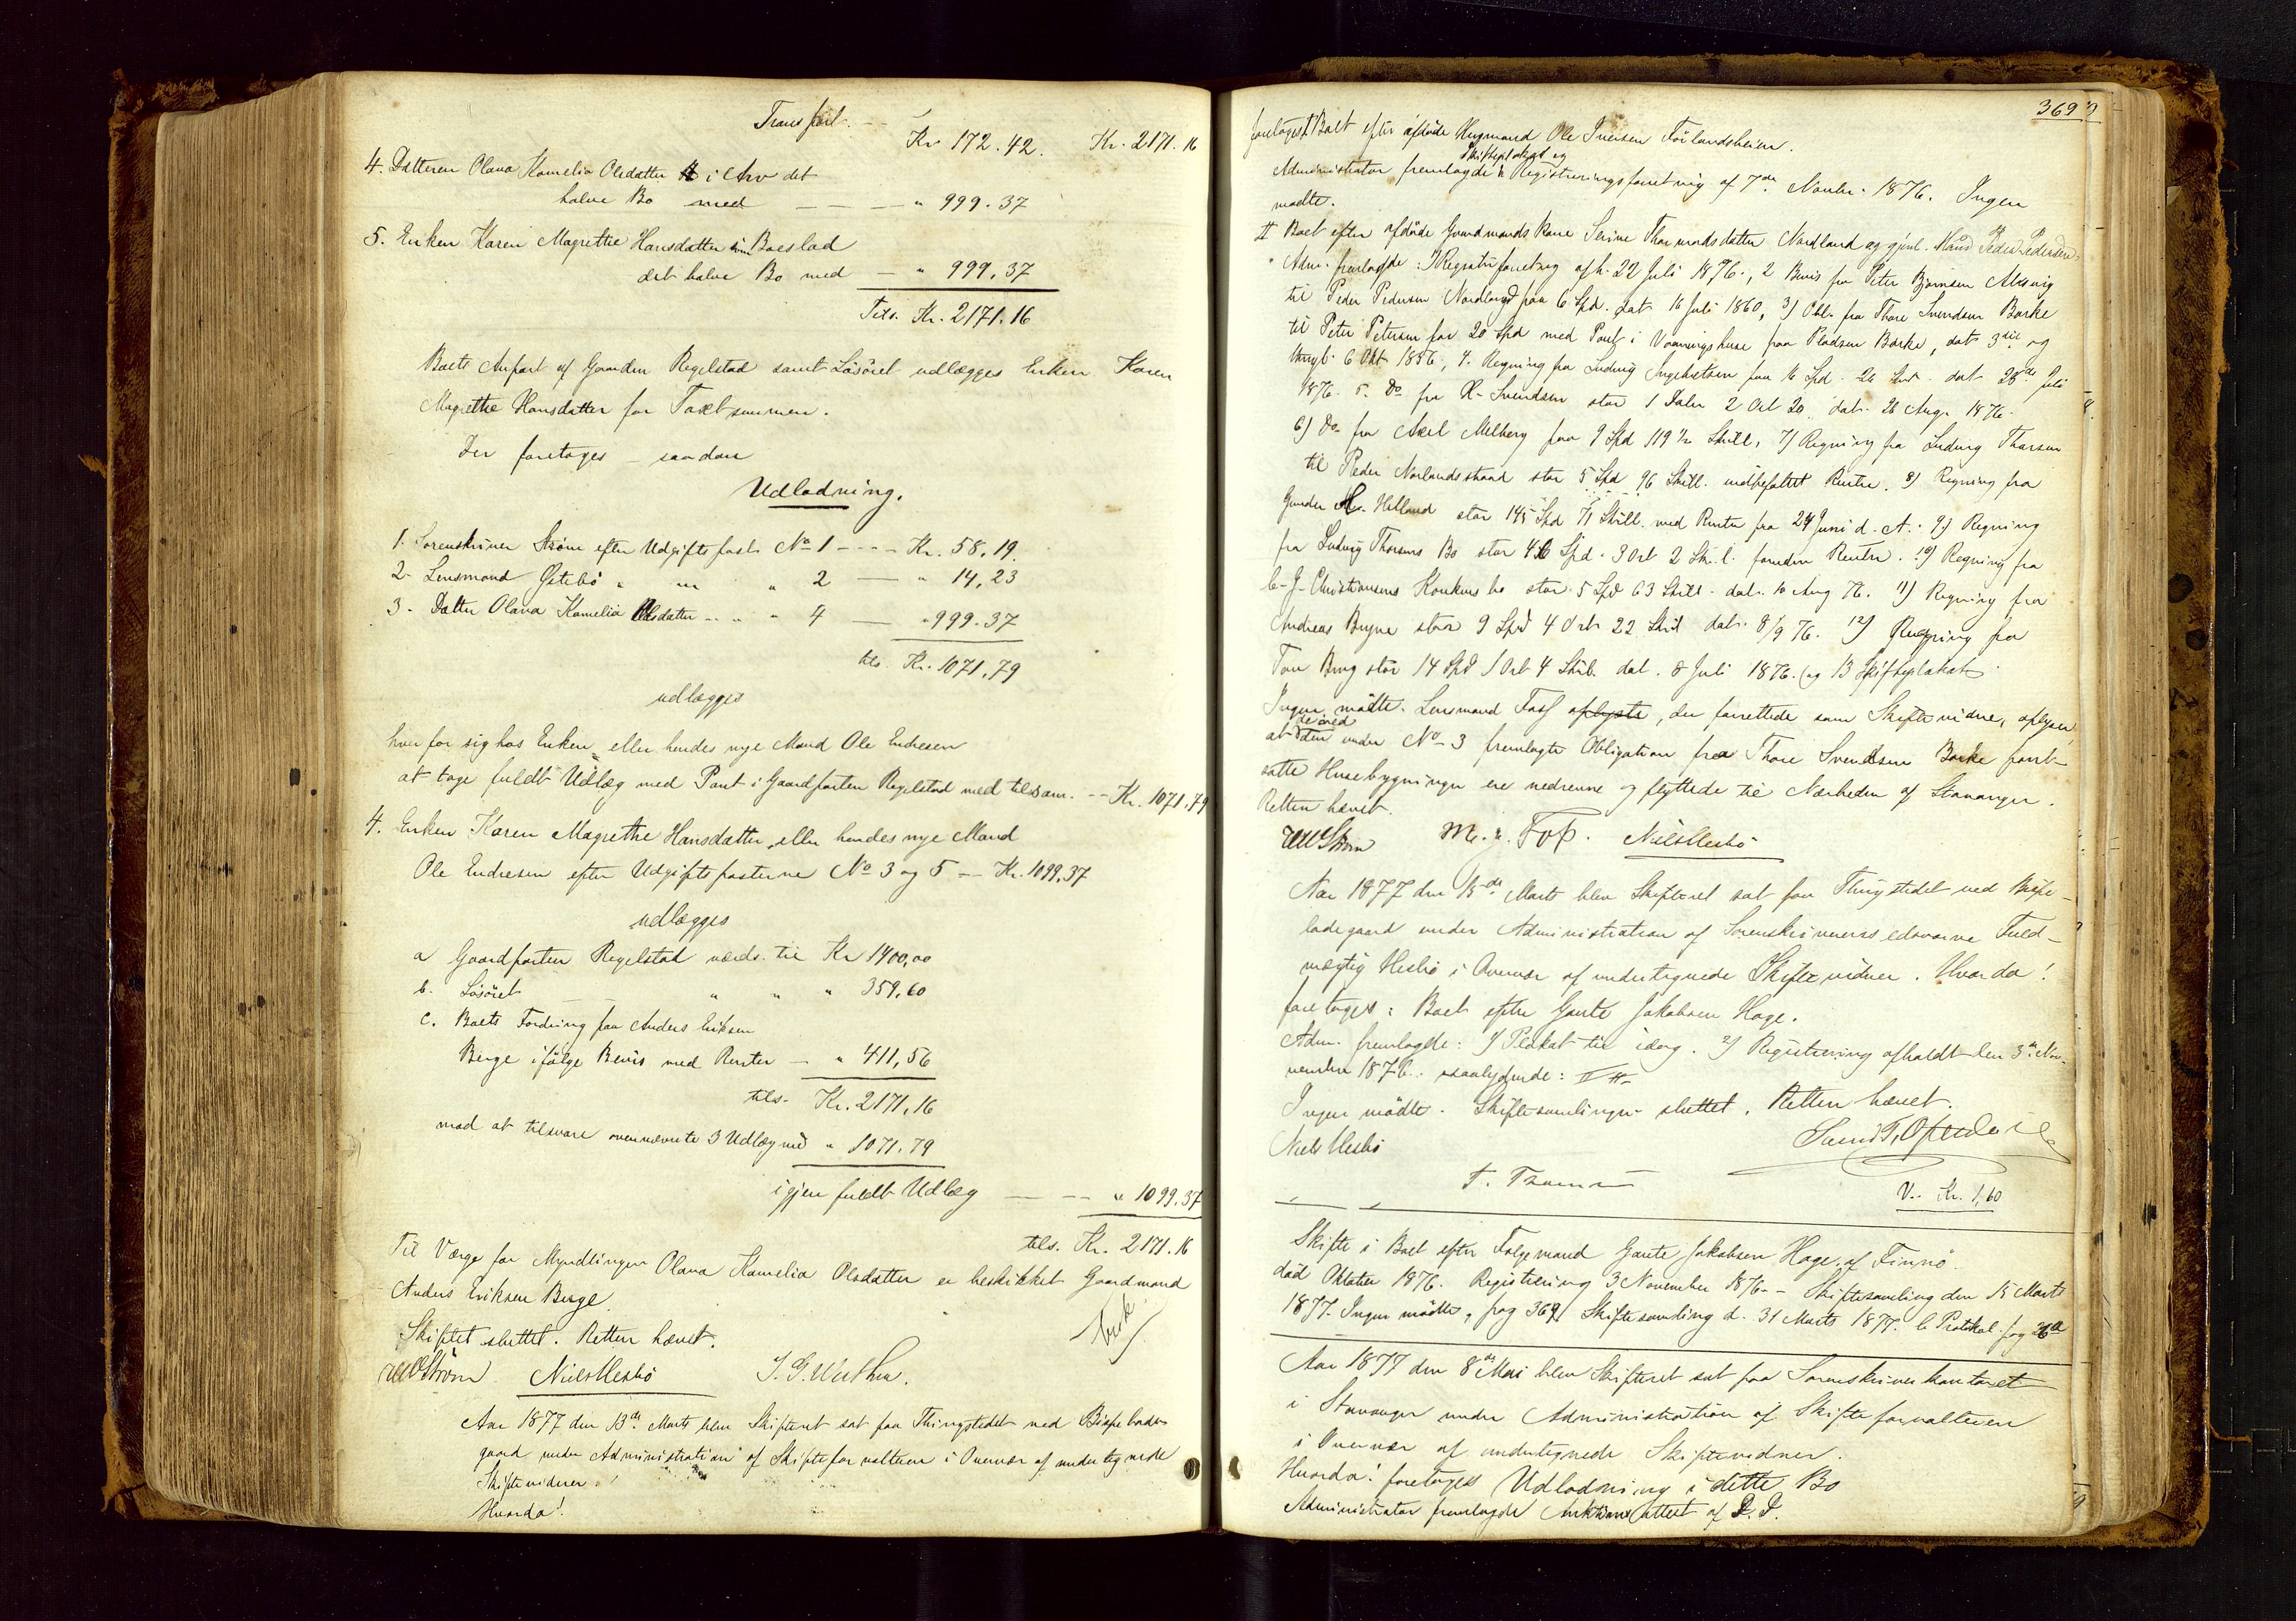 Transport.
Kr 172.42. Kr. 2171.16
4. Datteren Olava Kamelia Olsdatter i Arv det
halve Bo med — — — " 999.37
5. Enken Karen Magrethe Hansdatter sin Boeslod
det halve Bo med — " 999,37
Tils. Kr. 2171.16
Boets Anpart af Gaarden Regelstad samt Løsøret udlægges Enken Karen
Magrethe Hansdatter for Taxtsummen.
Der foretoges saadan
Udlodning.
1. Sorenskriver Strøm efter Udgiftspost No 1 - - - - Kr. 58,19.
2. Lensmand Østebö " " " 2 — " 14,23
3. Datter Olava Kamelia Olsdatter " " " 4 — " 999.37
tils. Kr. 1071,79
udlægges
hver for sig hos Enken, eller hendes nye Mand Ole Endresen
at tage fuldt Udlæg med Pant i Gaardparten Regelstad med tilsam. -- Kr. 1071,79
4. Enken Karen Magrethe Hansdatter, eller hendes nye Mand
Ole Endresen efter Udgiftsposterne No 3 og 5 -- Kr. 1099,37
udlægges
a Gaardparten Regelstad værds. til Kr 1400,00
b. Løsöret — — " " " 359,60
c. Boets Fordring paa Anders Eriksen
Berge ifølge Bevis med Renter — " 411,56
tils. Kr. 2171,16
mod at tilsvare ovennævnte 3 Udlæg med " 1071.79
igjen fuldt Udlæg — — — " 1099.37
tils. Kr. 2171.16
Til Værge for Myndlingen Olava Kamelia Olsdatter er beskikket Gaardmand
Anders Eriksen Berge.
Skiftet sluttet. Retten hævet.
Strøm Niels Hesbö
Aar 1877 den 13de Marts blev Skifteret sat paa Thingstedet ved Bispelade-
gaard under Administration af Skifteforvalteren i Overvær af undertegnede
Skiftevidner!
Hvorda!
369
foretoges I Boet efter afdøde Husmand Ole Iversen Förlandsheien.
Administrator fremlagde Skifteplakat og Registreringsforretning af 7de Novbr. 1876. Ingen
mødte.
II Boet efter afdøde Gaardmands Kone Serine Thormodsdatter Nordland og gjenl. Mand Peder Pedersen.
Adm. fremlagde: 1) Registrforretng afh. 22 Juli 1876., 2 Bevis fra Peter Bjørnsen
til Peder Pedersen Nordland paa 6 Spd. dat. 16 Juli 1860, 3) Obl. fra Thore Svendsen Barke
til Peter Petersen for 20 Spd med Pant i Vaaningshuse paa Pladsen Barke, dat. 3die og
thinglyst 6 Okt 1856, 4. Regning fra Ludvig Ingebretsen paa 16 Spd. 26 dat 28de Juli
1876. 5. Do fra R. Svendsen stor 1 Daler 2 Ort 20. dat. 26 Aug. 1876.
6) Do fra Axel Melberg paa 9 Spd 119 ½ Skill. 7) Regning fra Ludvig Thorsen
til Peder Norlandsstrand stor 5 Spd 96 Skill. indbefattet Renter. 8) Regning fra
Gunder H. Helland stor 145 Spd 71 Skill. med Renter fra 24 Juni d. A. 9) Regning
fra Ludvig Thorsens Bo stor 46 Spd. 3 Ort 2 Sk. l. foruden Renter. 10) Regning fra
C. J. Christiansens Konkurs bo stor 5 Spd 63 Skill. dat. 10 Aug 76. 11) Regning fra
Andreas Bryne stor 9 Spd 4 Ort 22 Skil dat. 8/9 76. 12) Regning fra
Berg stor 14 Spd 1 Ort 4 Skil. dat. 8 Juli 1876. og 13 Skifteplakat.
Ingen mødte. Lensmand Foss oplyste, der forrettede som Skiftevidne, oplyser,
at de ved den under No 3 fremlagte Obligation fra Thore Svendsen Barke pant-
satte Husebygninger ere nedrevne og flyttede til Nærheden af Stavanger.
Retten hævet.
Strøm M. Foss. Niels Hesbö
Aar 1877 den 15de Marts blev Skifteret sat paa Thingstedet ved Bispe-
ladegaard under Administration af Sorenskriverens edsvorne Fuld-
mægtig Hesbö i Overvær af undertegnede Skiftevidner. Hvorda!
foretoges: Boet efter Gaute Jakobsen Hage.
Adm. fremlagde: 1) Plakat til idag. 2) Registrering afholdt den 3de No-
vember 1876. saalydende:
Ingen mødte. Skiftesamlingen sluttet. Retten hævet.
Niels Hesbö
V. Kr. 1,60
Skifte i Boet efter Folgemand Gaute Jakobsen Hage, af Finnø.
død Oktober 1876. Registrering 3 November 1876. - Skiftesamling den 15 Marts
1877. Ingen mødte, pag 369. Skiftesamling d. 31 Marts 1877. Protokol. pag
Aar 1877 den 8de Mai blev Skifteret sat paa Sorenskriverkontoret
i Stavanger under Administration af Skifteforvalteren
i Overvær af undertegnede Skiftevidner.
Hvorda! foretoges Udlodning i dette Bo
Administrator fremlagde Auktions attest af D. D.